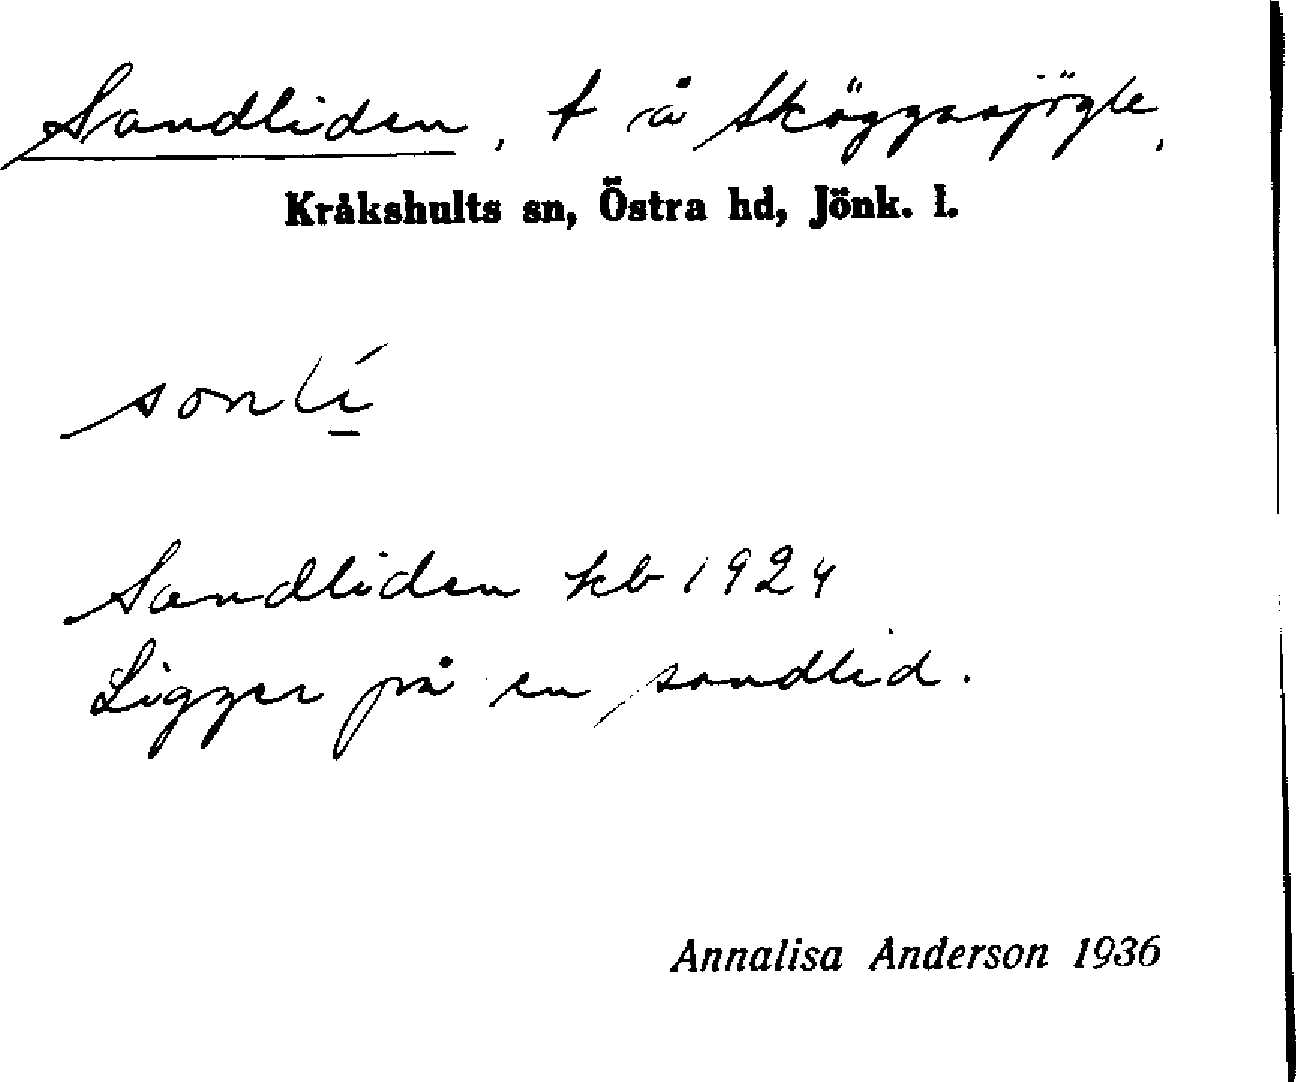 Sandliden, t å Sköggssjögle,
Kråkshults sn, Östra hd, Jönk. l.
sonlí
Sandliden kb 1924
Ligger på en sandlid.
Annalisa Anderson 1936